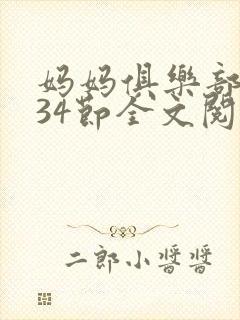 妈妈俱樂部
34節全文閱
二郎小醬醬